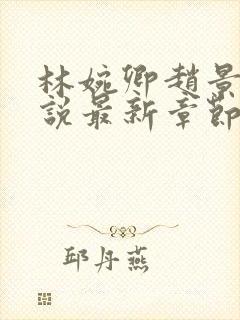 林婉卿趙景
説最新章節
邱丹燕